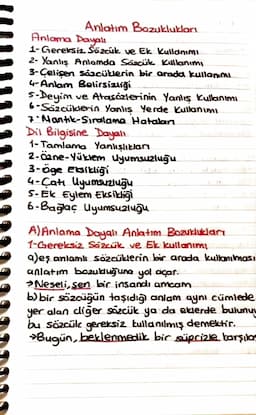 Anlatım Bozuklukları
Anlama Dayalı
1-Gereksiz Sözcük ve Ek Kullanımı
2-Yanlış Anlamda Sözcük Kullanımı
3-Çelişen sözcüklerin bir arada kullanımı
4-Anlam Belirsizliği
5-Deyim ve Atasözlerinin Yanlış Kullanımı
6-Sözcüklerin Yanlış Yerde Kullanımı
7-Mantık-Sıralama Hataları
Dil Bilgisine Dayalı
1-Tamlama Yanlışlıkları
2-Özne-Yüklem Uyumsuzluğu
3-Öge Eksikliği
4-Çatı Uyumsuzluğu
5-Ek Eylem Eksikliği
6-Bağlaç Uyumsuzluğu
A)Anlama Dayalı Anlatım Bozuklukları
1-Gereksiz Sözcük ve Ek kullanımı
a)eş anlamlı sözcüklerin bir arada kullanılması
anlatım bozukluğuna yol açar.
→Neşeli,şen bir insandı amcam
b)bir sözcüğün taşıdığı anlam aynı cümlede
yer alan diğer sözcük ya da eklerde bulunuy
bu sözcük gereksiz kullanılmış demektir.
→Bugün, beklenmedik bir süprizle karşılaş